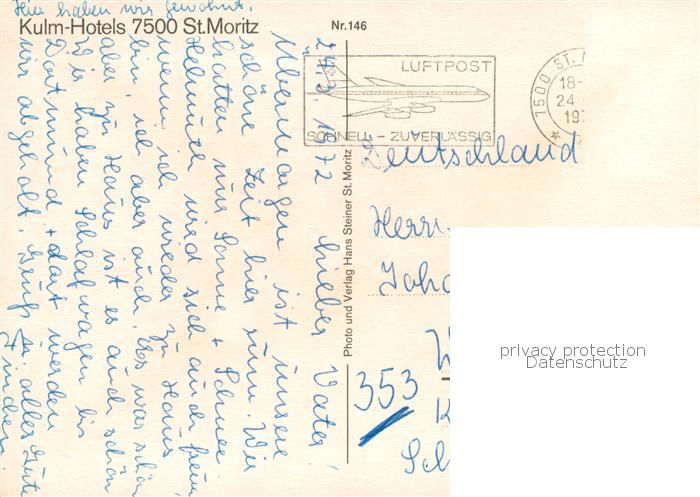 Hier haben wir gewohnt.
Kulm-Hotels 7500 St. Moritz
Nr. 146
24.3.1972 Lieber Vater!
Übermorgen ist unsere
schöne Zeit hier rum. Wir
hatten nur Sonne + Schnee.
Helmuth wird sich auch freuen
wenn ich wieder zu Haus
bin, ich aber auch. Es war schön
aber zu Haus ist es auch schön
Wir haben Schlafwagen bis
Dortmund + dort werden
wir abgeholt. Gruß u. alles Gute
Photo und Verlag Hans Steiner St. Moritz
LUFTPOST
SCHNELL - ZUVERLÄSSIG
7500 ST.
18-
24
197
Deutschland
Herrn
Joh
353
privacy protection
Datenschutz